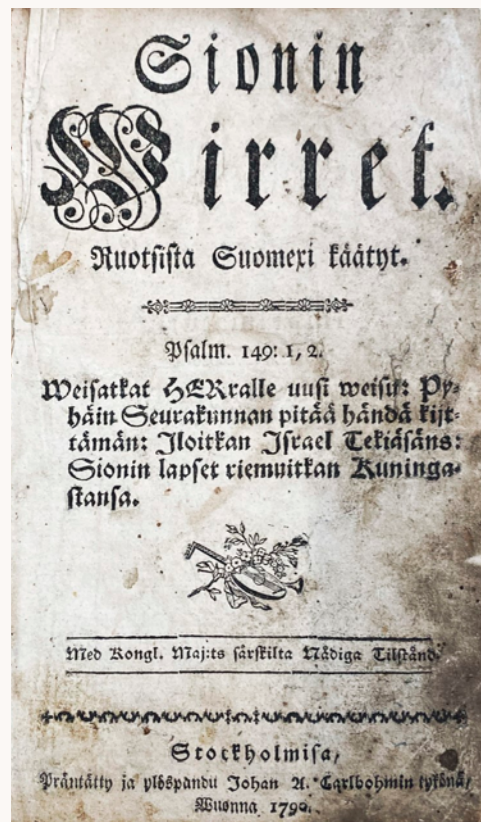 Sionin
Wirret.
Ruotsista Suomexi käätyt.
Psalm. 149: 1, 2.
Weisatkat HERralle uusi weisu: Py-
häin Seurakunnan pitää händä kijt-
tämän: Iloitkan Israel Tekiäsäns:
Sionin lapset riemuitkan Kuninga-
stansa.
Med Kongl. Maj:ts särskilta Nådiga Tilstånd.
Stockholmisa,
Präntätty ja ylöspandu Johan A. Carlbohmin tykönä,
Wuonna 1790.